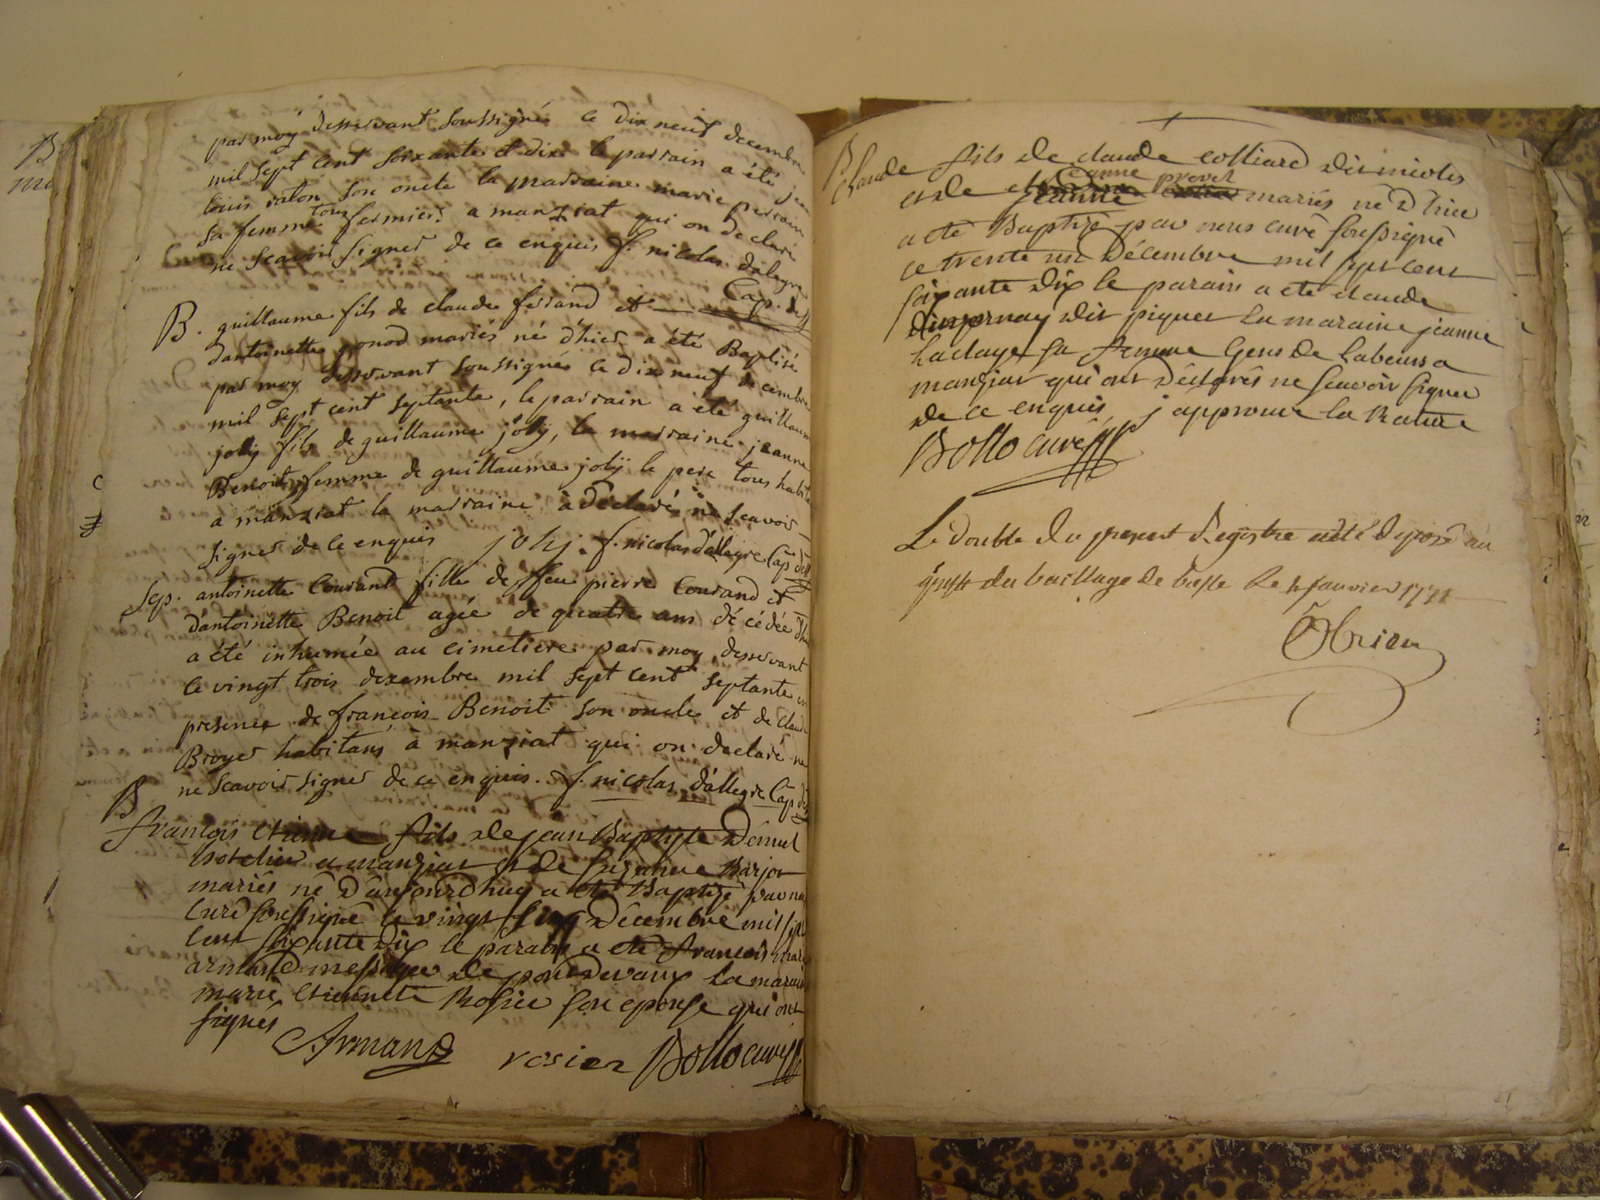 par moy desservant soussigné ce dix neuf decembre
mil sept cent soixante et dix le parrain a été jean
louis raton son oncle la marraine marie perrain
sa femme tous fermiers a manziat qui on declaré
ne scavoir signer de ce enquis f. nicolas dallegre
Cap. dess
B. guillaume fils de claude ferrand et
dantoinette ponod mariés né d'hier a été Baptisé
par moy desservant soussignés ce dix neuf decembre
mil sept cent septante, le parrain a été guillaume
joly fils de guillaume joly, la marraine jeanne
Benoit femme de guillaume joly le pere tous habit
a manziat la marraine à déclaré ne scavoir
signer de ce enquis joly. f. nicolas dallegre Cap. dess
Sep. antoinette Courant fille de feu pierre Courand et
dantoinette Benoit agée de quatre ans décédée d'hier
a été inhumée au cimetiere par moy desservant
ce vingt trois dexembre mil sept cent septante en
presence de françois Benoit son oncle et de claude
Broyer habitans à manziat qui on declaré ne
ne scavoir signer de ce enquis. f. nicolas d'allegre Cap. dess
B
françois etienne fils de jean Baptiste
hotelier a manziat et de suzanne Barjot
mariés né d'aujourd'huy a eté Baptizé par nous
curé soussigné le vingt cinq décembre mil sept
cent soixante dix le parain a eté françois
armand messager de pont de vaux la maraine
marie etiennette Rosier son epouse qui ont
signés
Armand rosier Bollo curé
B
Claude fils de claude colliard dit micolis
et de jeanne provet mariés né d'hier
a eté Baptizé par nous curé soussigné
ce trente un décembre mil sept cent
soixante dix le parain a eté claude
dupernay dit piquet la maraine jeanne
sa femme gens de labeurs a
manziat qui ont déclarés ne scavoir signer
de ce enquis j'approuve la Rature
Bollo curé
Le double du present Registre a eté deposé au
greffe du bailliage de bresse le 4 janvier 1771